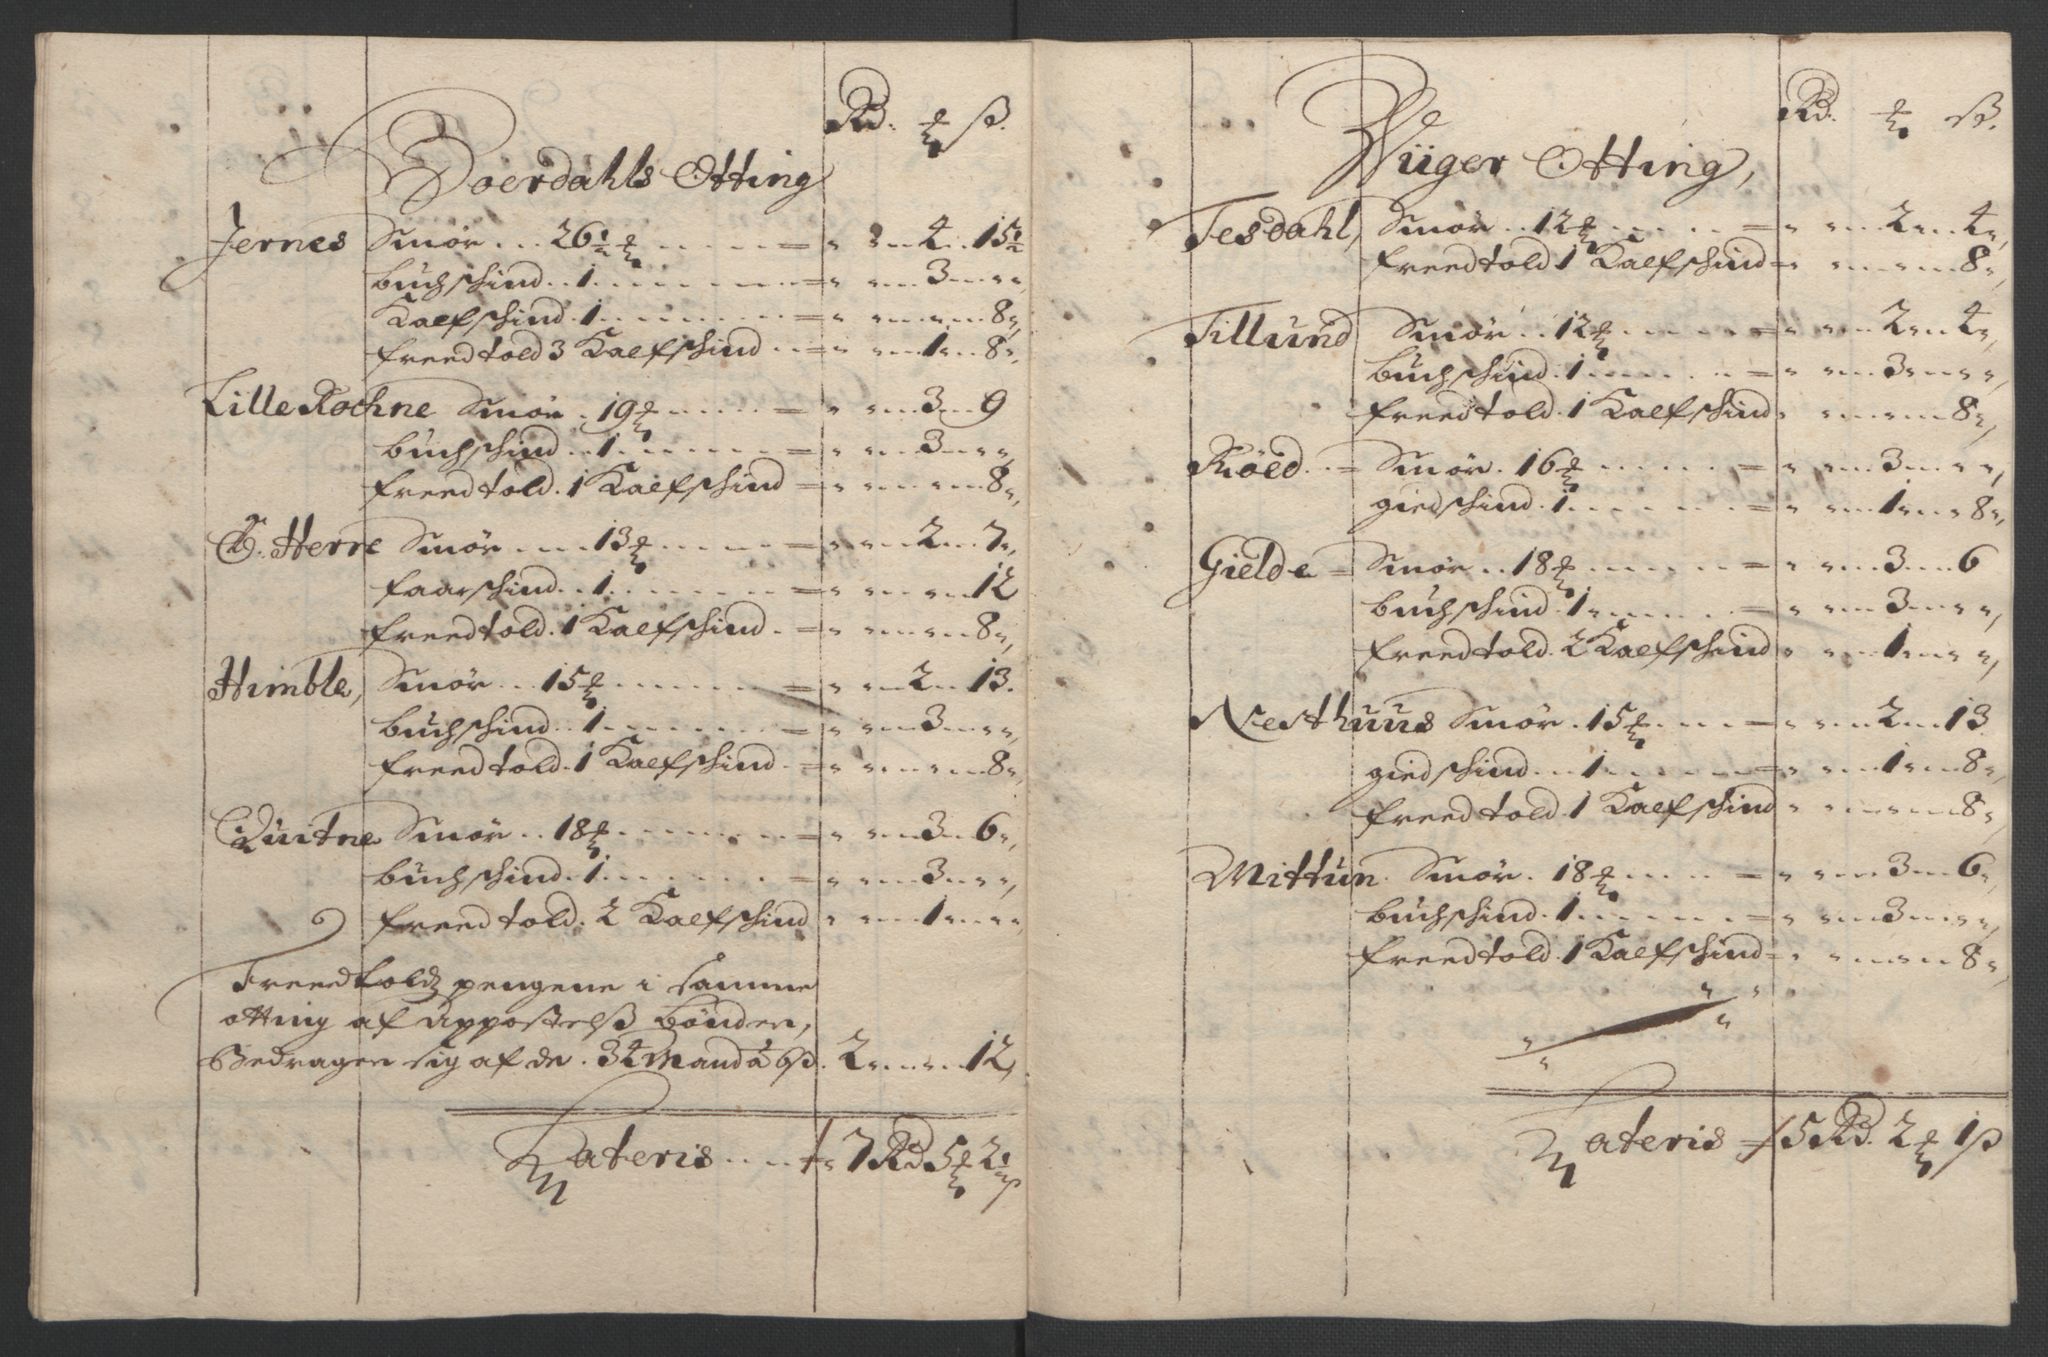 Rd. ₰ ß.
Boerdahls Otting
Jernes Smör... 26½ ₰ ..... = " " 4 " 15½
buchschind.. 1 ........ = " " 3 " "
Kalfschind. 1 ........ = " " " 8 "
freed told 3 Kalfschind .. = " " 1 " 8 "
Lille Rochne Smör. 19 ₰ ..... = " " 3 " 9
buchschind.. 1 ...... = " " 3 " "
freed told. 1 Kalfschind = " " " 8 "
Herre Smör .... 13 ₰ ..... = " " 2 " 7 "
faarschind.. 1 ....... = " " " 12
freed told. 1 Kalfschind. = " " " 8 "
Himble, Smör... 15 ₰ ...... = " " 2 " 13.
buchschind.. 1 ....... = " " 3 " "
freed told. 1 Kalfschind. = " " " 8 "
Quitne Smör.. 18 ₰ ...... = " " 3 " 6 "
buchschind. 1 ...... = " " 3 " "
freed told. 2 Kalfschind " " 1 " "
Freed tolds pengene i samme
otting af Appostelß bönder,
Bedragen sig af de. 32 Mand à 6 ß. 2 " " 12,
Lateris .... 7 Rd 5 ₰ 2½ ß
Rd. ₰ ß.
Wüger Otting,
Tesdahl, Smör.. 12 ₰ .... = " " 2 " 4 "
freed told 1 Kalfschind = " " " 8 "
Tillund Smör.. 12 ₰ ..... = " " 2 " 4 "
buchschind. 1 ...... = " " 3 " "
freed told. 1 Kalfschind " " " 8 "
Röed.. = Smör. 16 ₰ ..... = " " 3 " "
giedschind. 1 ...... = " " 1 " 8 "
Gielde = Smör.. 18 ₰ ..... = " " 3 " 6
buchschind. 1 ...... = " " 3 " "
freed told. 2 Kalfschind " " 1 " "
Nesthuus Smör. 15 ₰ .... = " " 2 " 13
giedschind... 1 ..... = " " 1 " 8 "
freed told. 1 Kalfschind " " " 8 "
Mittun. Smör. 18 ₰ .... = " " 3 " 6 "
buchschind. 1 ..... = " " 3 " "
freed told. 1 Kalfschind = " " " 8 "
Lateris = 5 Rd. 2 ₰ 1 ß